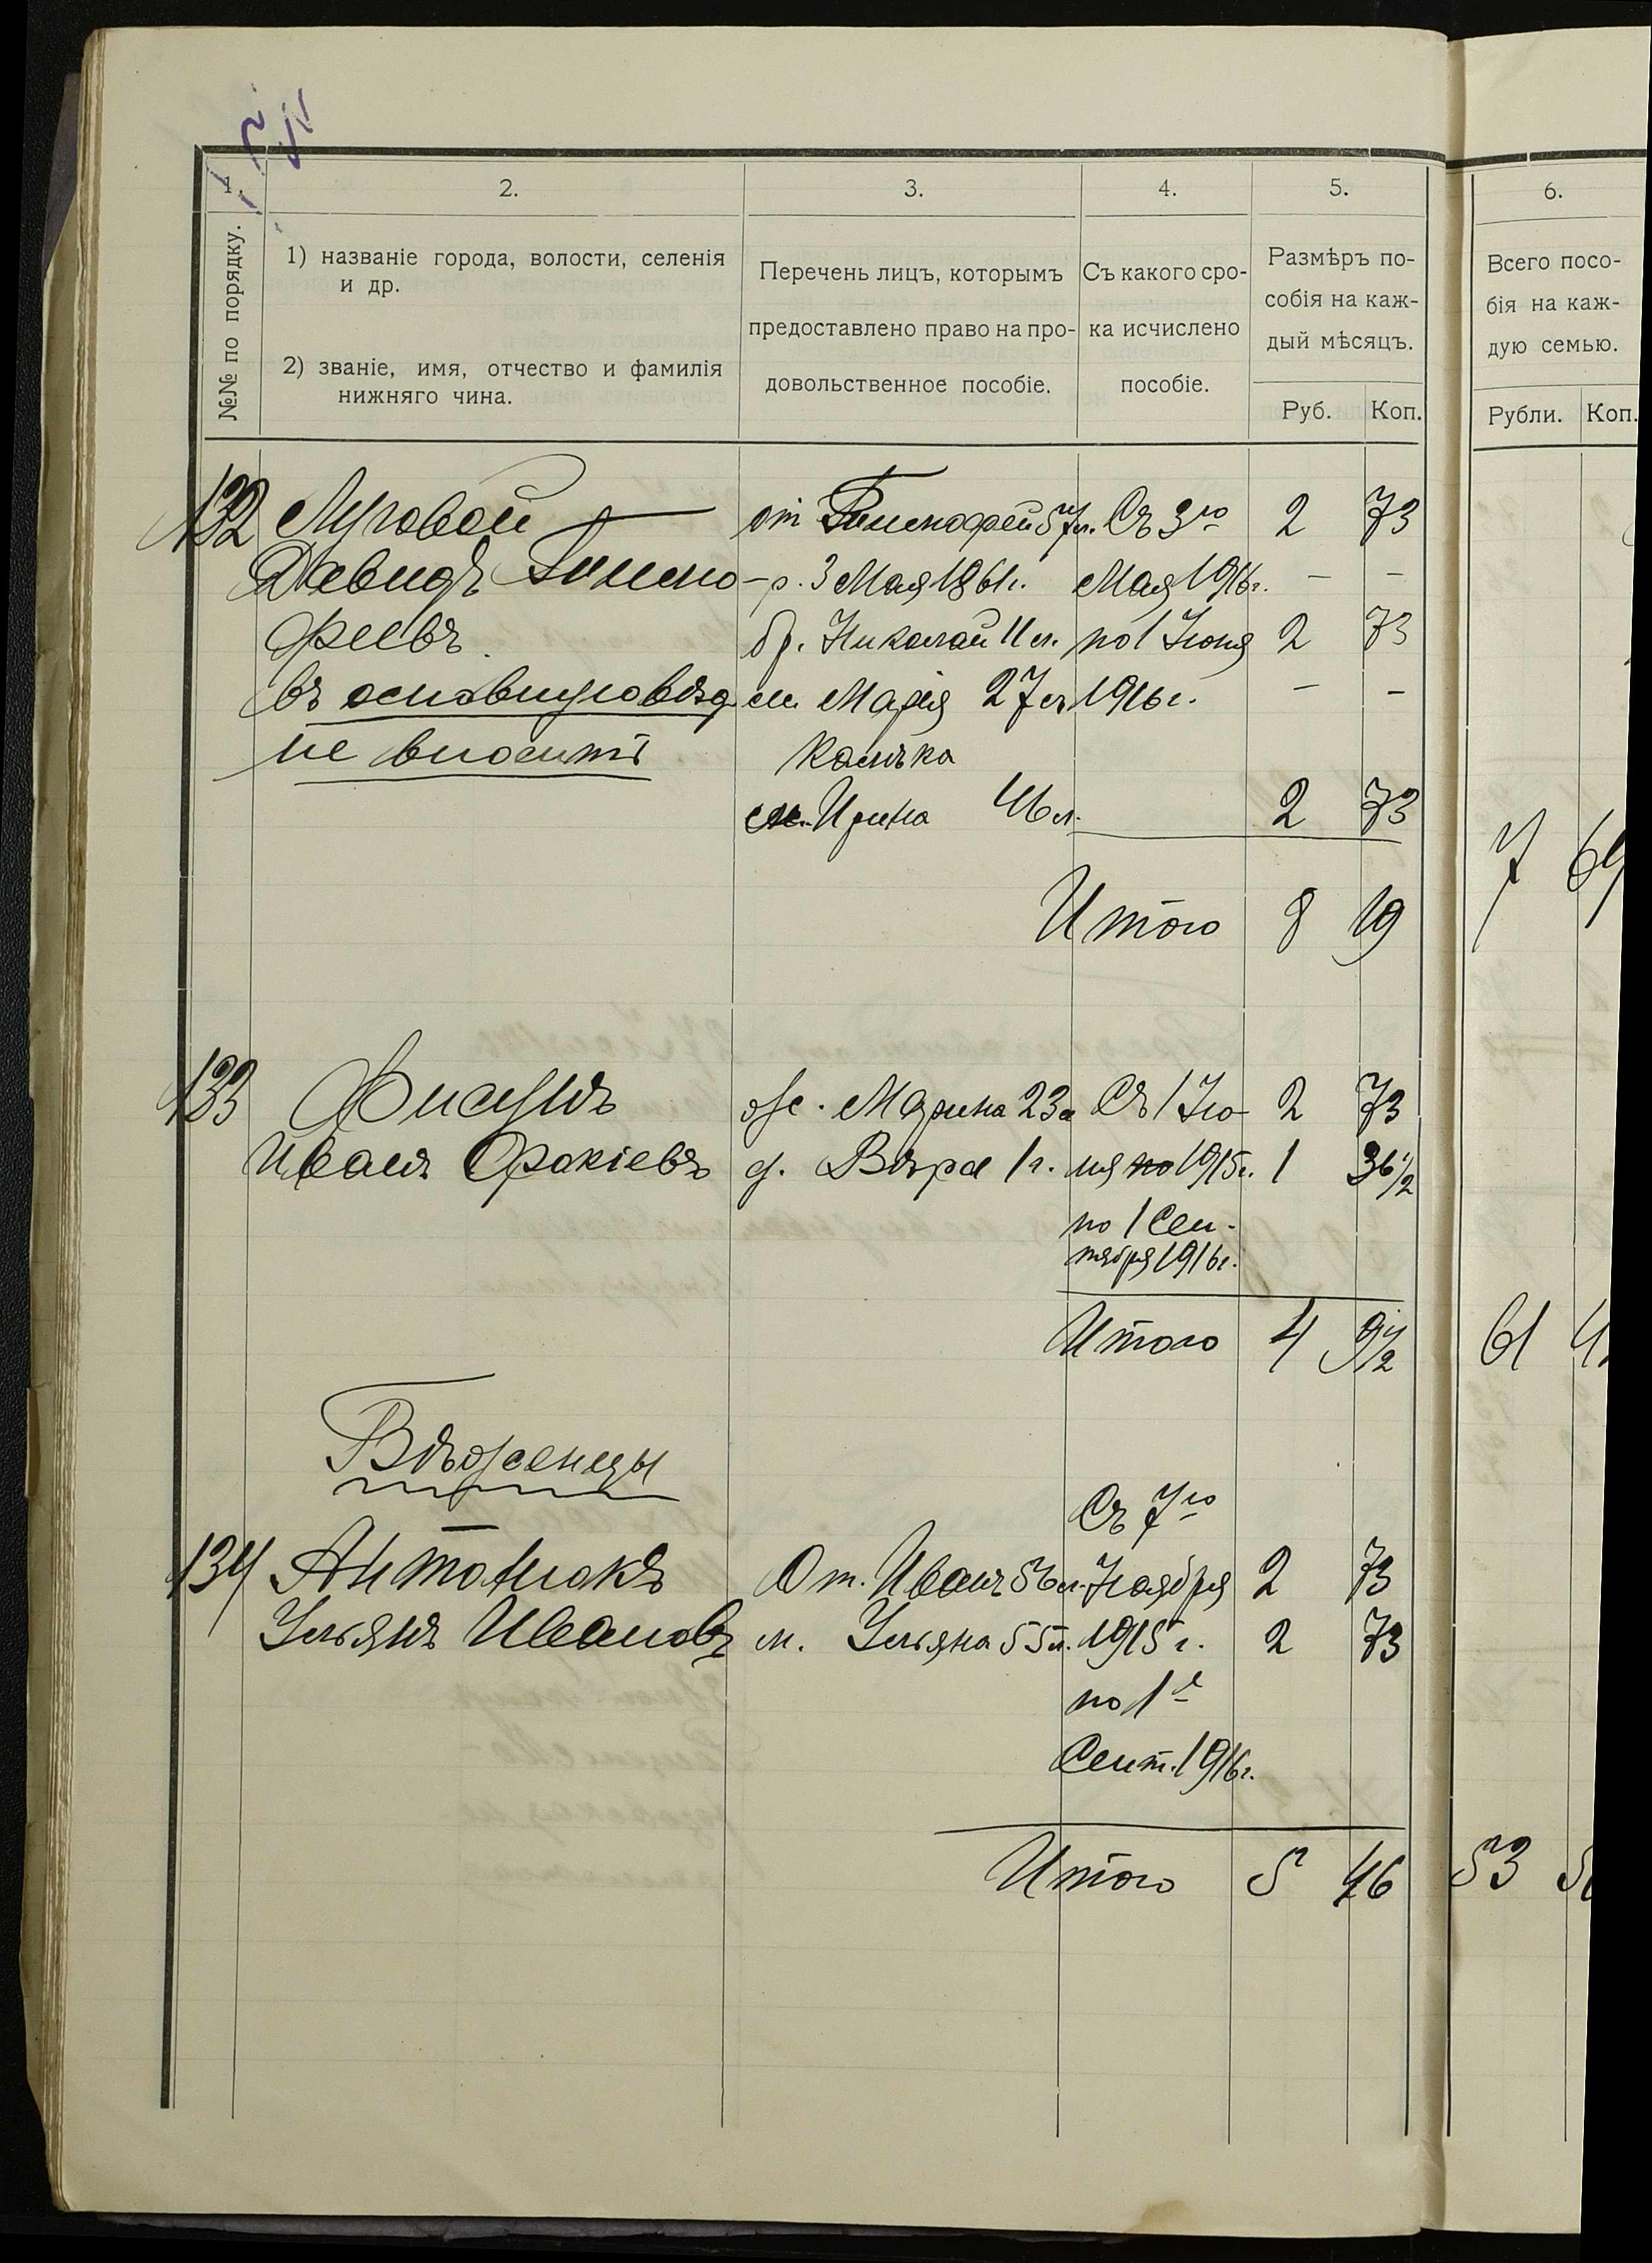 1. 2. 3. 4. 5. 6.
№№ по порядку.
1) названіе города, волости, селенія
и др.
2) званіе, имя, отчество и фамилія
нижняго чина.
Перечень лицъ, которымъ
предоставлено право на про-
довольственное пособіе.
Съ какого сро-
ка исчислено
пособіе.
Размѣръ по-
собія на каж-
дый мѣсяцъ.
Руб. Коп.
Всего посо-
бія на каж-
дую семью.
Рубли. Коп.
132 Луговой от Тимофей 57 л. Съ 3го 2 73
Давидъ Тимо- р. 3 Мая 1861 г. Мая 1916 г. — —
феевъ. бр. Николай 11 л. по 1 Іюня 2 73
въ основную вѣд. Марія 27 л. 1916 г. — —
не вносить Калѣка
м. Ирина 2 73
7 69
Итого 8 19
133 Фисунъ ж. Марина 23 л. Съ 1 Ію- 2 73
Иванъ Фокіевъ д. Вѣра 1 г. ля 1915 г. 1 36 1/2
по 1 Сен-
тября 1916 г.
Итого 4 9 1/2 61
Бѣженцы
Съ 7го
134 Антонюкъ От. Иванъ 56 л. Ноября 2 73
Ульянъ Ивановъ м. Ульяна 55 л. 1915 г. 2 73
по 1е
Сент. 1916 г.
Итого 5 46 53